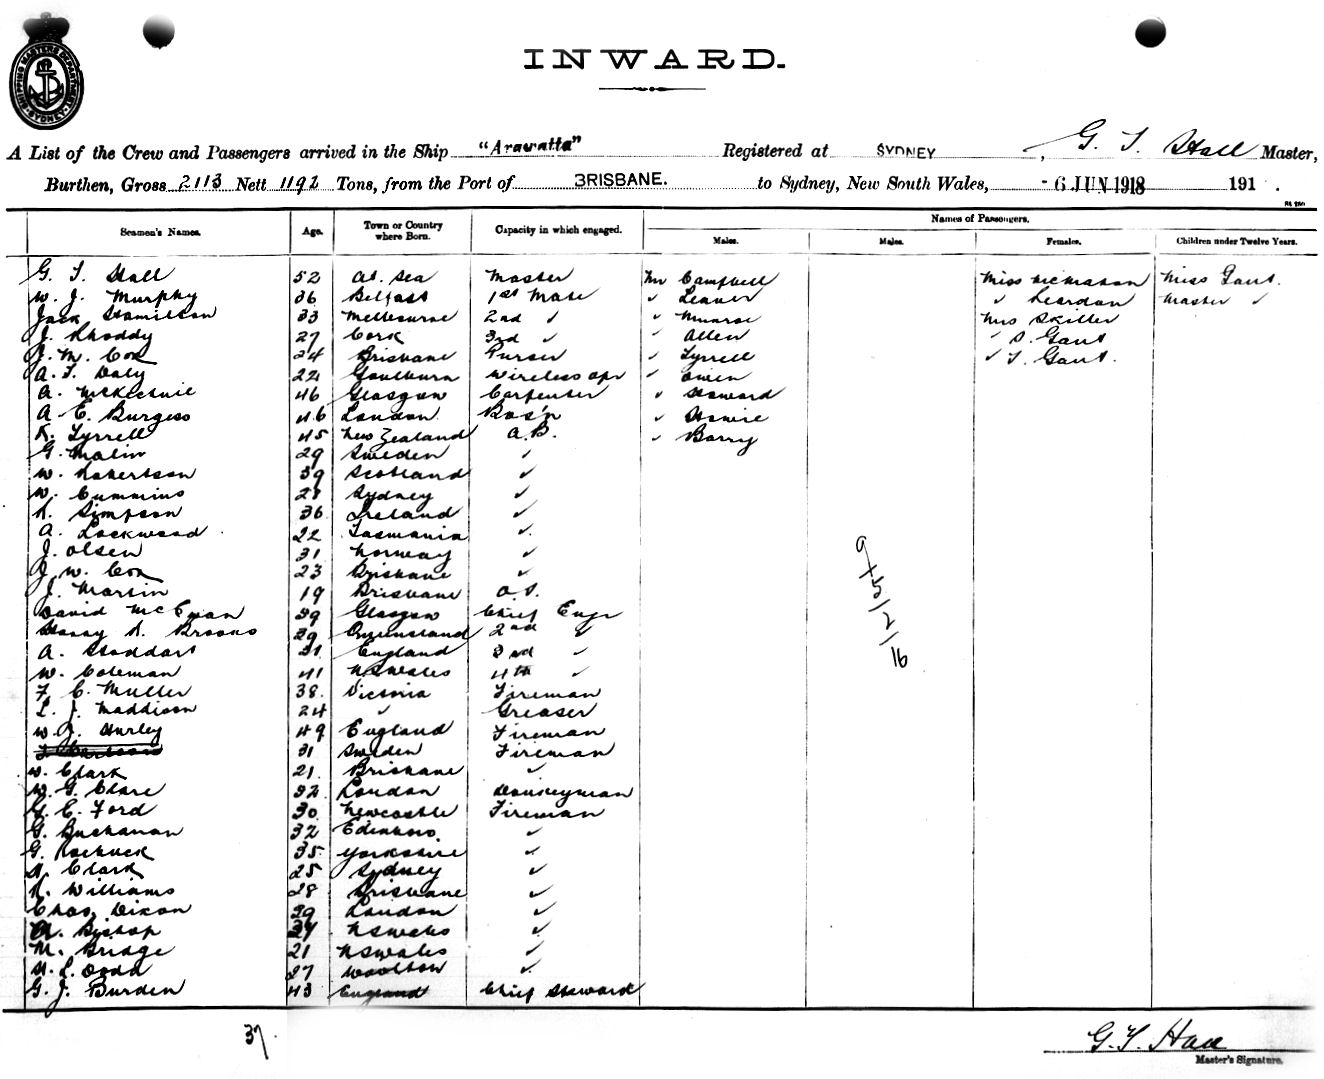 SHIPPING MASTERS DEPARTMENT SYDNEY
INWARD.
A List of the Crew and Passengers arrived in the Ship "Arawatta" Registered at SYDNEY, G. T. Hall Master,
Burthen, Gross 2113 Nett 1192 Tons, from the Port of BRISBANE. to Sydney, New South Wales, - 6 JUN 1918 191 .
Seamen's Names. Age. Town or Country where Born. Capacity in which engaged. Names of Passengers.
Males. Males. Females. Children under Twelve Years.
G. T. Hall 52 At Sea Master Mr Campbell Miss McMahon Miss Gaut.
W. J. Murphy 36 Belfast 1st Mate " Leaver " Reardon Master "
Jack Hamilton 33 Melbourne 2nd " " Munroe Mrs Skiller
J. Rhoddy 27 Cork 3rd " " Allen " S. Gaut
J. M. Cox 24 Brisbane Purser " Tyrrell " T. Gaut.
A. T. Daly 22 Goulburn Wireless opr " Owen
A. McKechnie 46 Glasgow Carpenter " Howard
A. E. Burgess 46 London Bos'n " Howie
R. Tyrrell 45 New Zealand A.B. " Barry
G. Malin 29 Sweden "
W. Robertson 39 Scotland "
W. Cummins 28 Sydney "
R. Simpson 36 Ireland "
A. Lockwood 22 Tasmania "
J. Olsen 31 Norway "
J. W. Cox 23 Brisbane "
J. Martin 19 Brisbane O.S.
David McEwan 39 Glasgow Chief Engr
Harry R. Brooks 39 Queensland 2nd "
A. Stoddart 31 England 3rd "
W. Coleman 41 NSWales 4th "
F. C. Muller 38 Victoria Fireman
L. J. Maddison 24 " Greaser
W. J. Hurley 49 England Fireman
31 Sweden Fireman
W. Clark 21 Brisbane "
W. G. Clare 32 London Donkeyman
G. E. Ford 30 Newcastle Fireman
G. Buchanan 32 Edinboro "
G. Roebuck 35 Yorkshire "
H. Clark 25 Sydney "
R. Williams 28 Brisbane "
Chas. Dixon 39 London "
A. Bishop 34 NSWales "
M. Bridge 21 NSWales "
H. L. Dodd 37 Woolton "
G. J. Burden 43 England Chief Steward
9 + 5 / 2 / 16
37
G. T. Hall
Master's Signature.